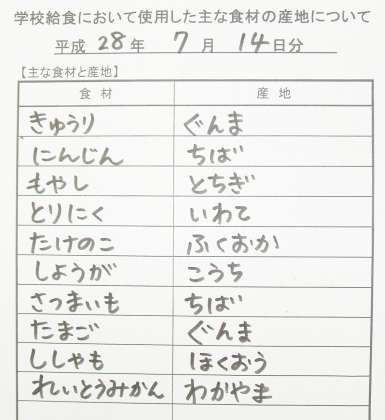 学校給食において使用した主な食材の産地について
平成 28 年 7 月 14 日分
【主な食材と産地】
食材 産地
きゅうり ぐんま
にんじん ちば
もやし とちぎ
とりにく いわて
たけのこ ふくおか
しょうが こうち
さつまいも ちば
たまご ぐんま
ししゃも ほくおう
れいとうみかん わかやま